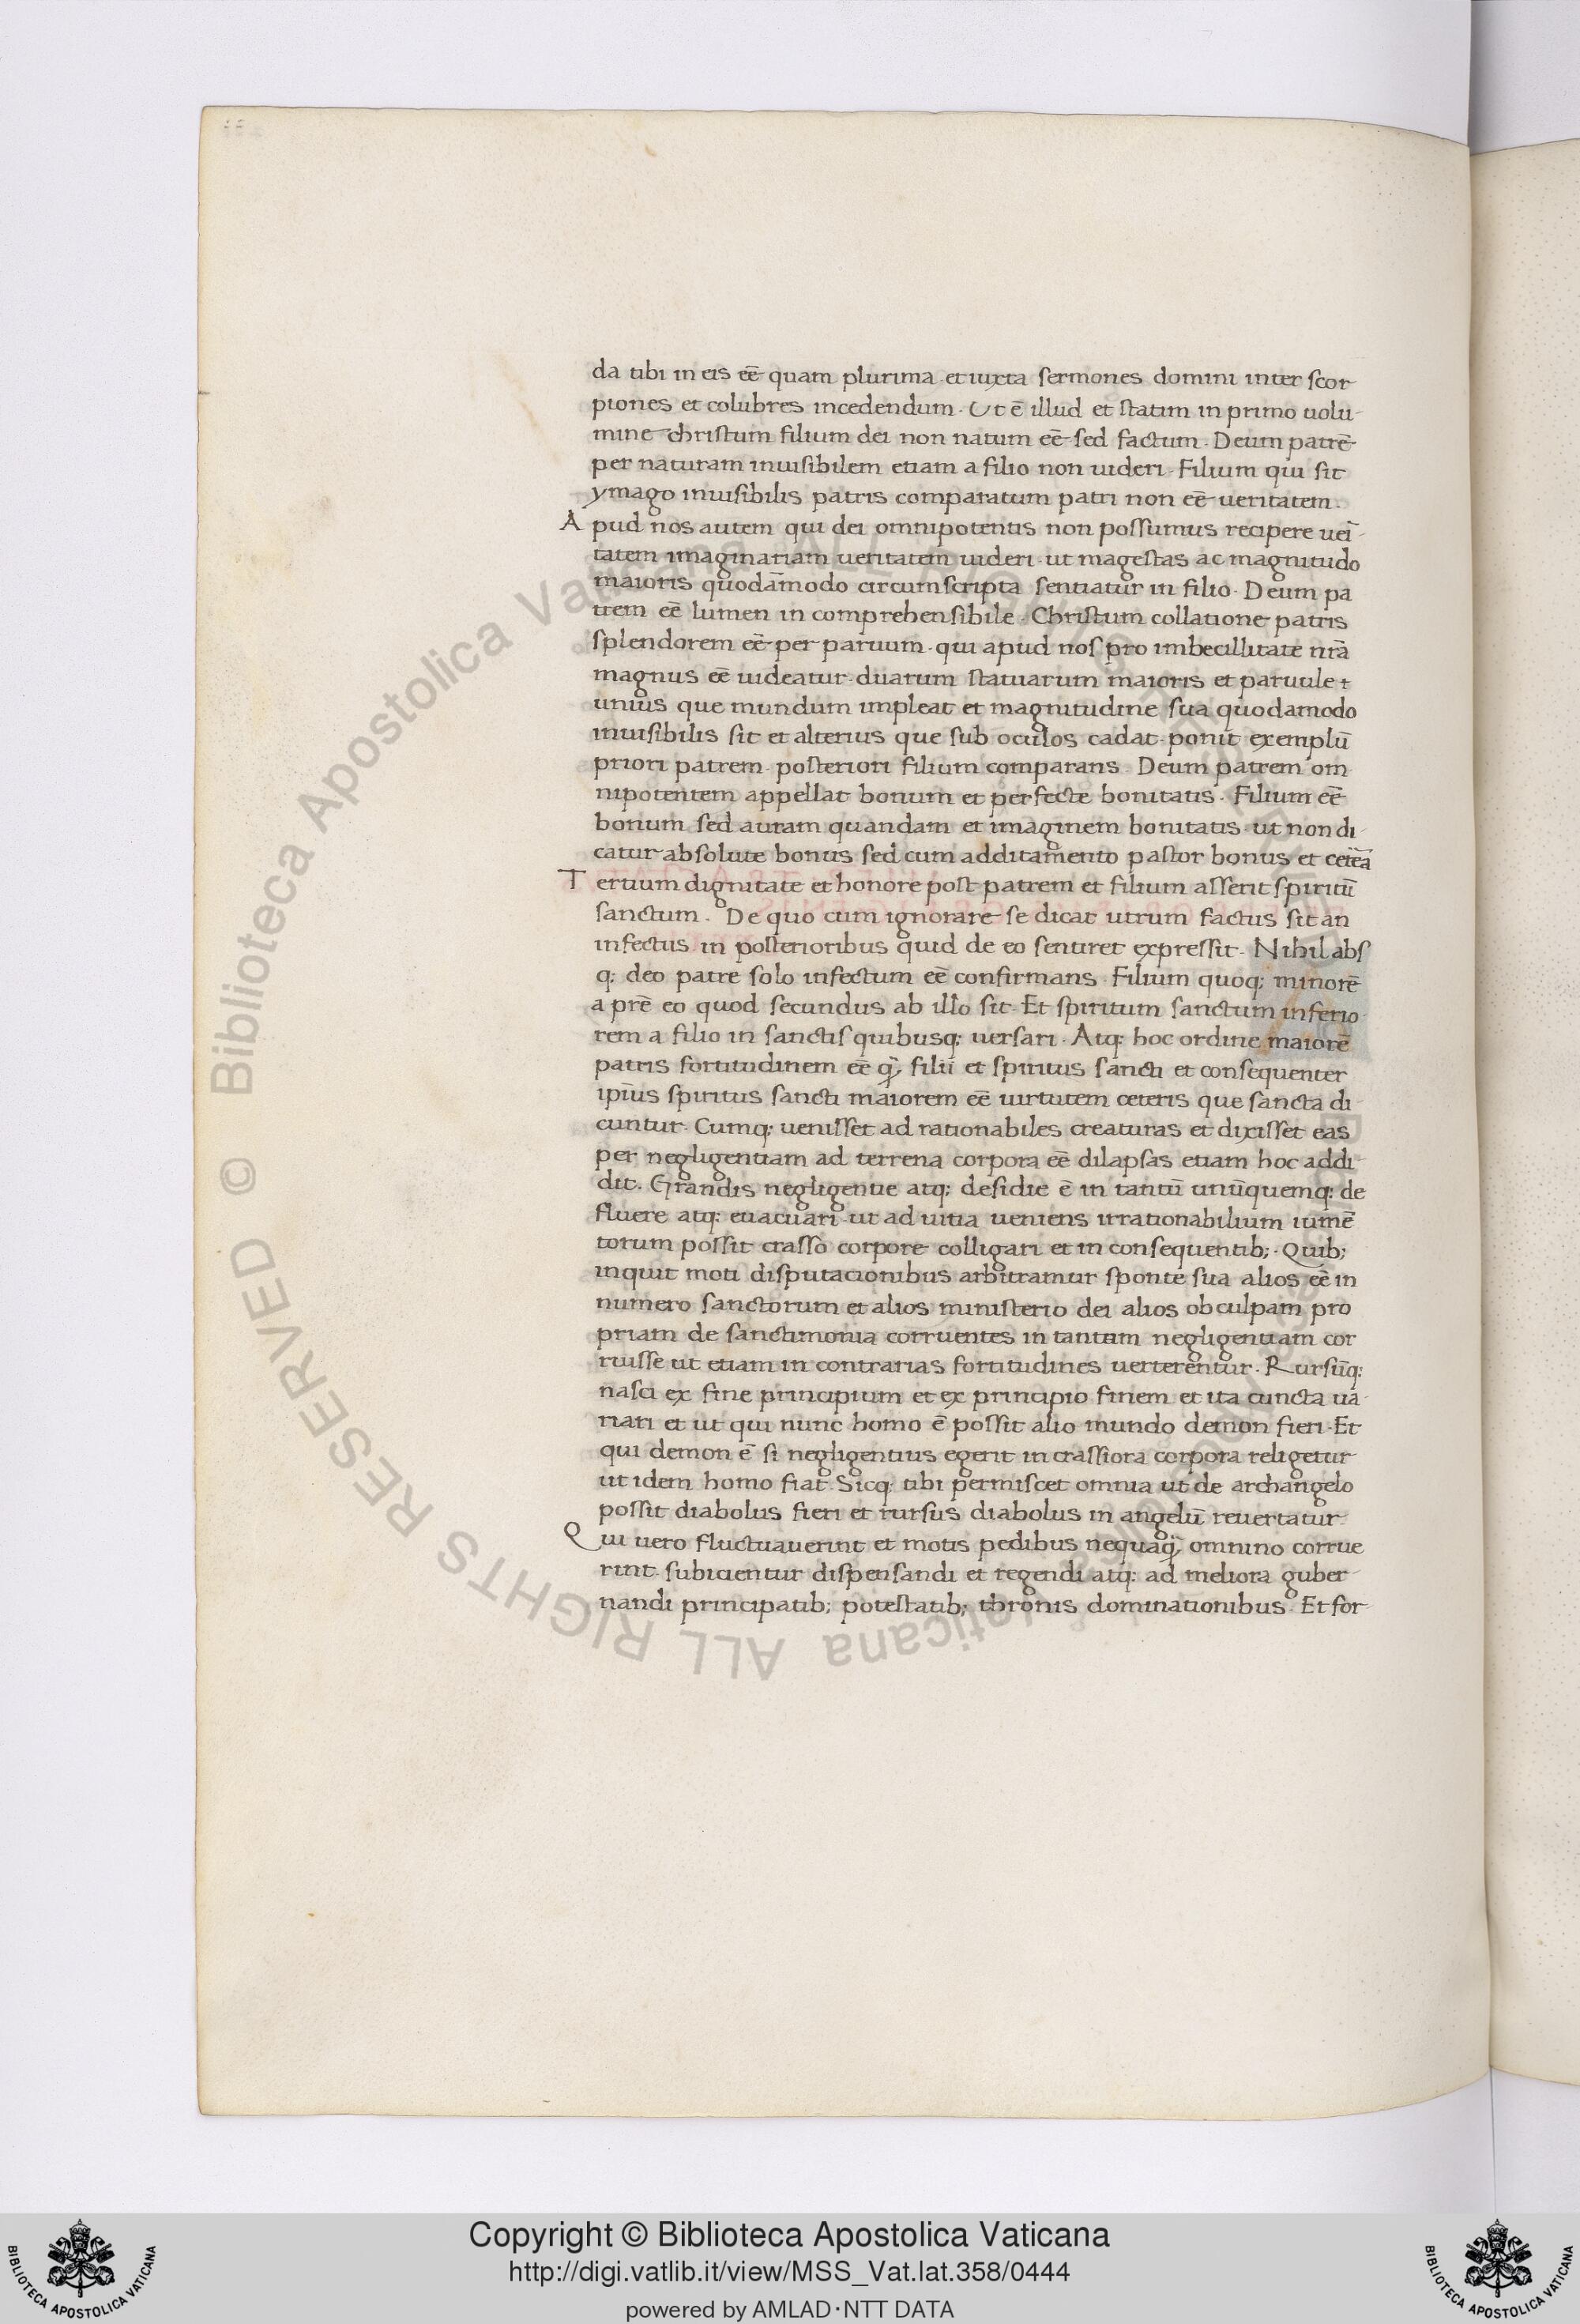 da tibi in eis eē quam plurima et iuxta sermones domini inter scor
piones et colubres incedendum. Ut ē illud et statim in primo uolu-
mine christum filium dei non natum eē sed factum. Deum patrē
per naturam inuisibilem etiam a filio non uideri. Filium qui sit
ymago inuisibilis patris comparatum patri non eē ueritatem.
A pud nos autem qui dei omnipotentis non possumus recipere uei̅-
tatem imaginariam ueritatem uideri. ut magestas ac magnitudo
maioris quodāmodo circumscripta sentiatur in filio. Deum pa
trem eē lumen in comprehensibile. Christum collatione patris
splendorem eē per paruum. qui apud nos pro imbecillitate nr̄a
magnus eē uideatur. duarum statuarum maioris et paruule
unius que mundum impleat et magnitudine sua quodamodo
inuisibilis sit et alterius que sub oculos cadat. ponit exemplū
priori patrem. posteriori filium comparans. Deum patrem om
nipotentem appellat bonum et perfecte bonitatis. Filium eē
bonum sed auram quandam et imaginem bonitatis. ut non di-
catur absolute bonus sed cum additamento pastor bonus et cet̄ea
T ertium dignitate et honore post patrem et filium asserit spiritū
sanctum. De quo cum ignorare se dicat utrum factus sit an
infectus in posterioribus quid de eo sentiret expressit. Nihil abs
q; deo patre solo infectum eē confirmans. Filium quoq; minorē
a pr̄e eo quod secundus ab illo sit. Et spiritum sanctum inferio-
rem a filio in sanctis quibusq; uersari. Atq; hoc ordine maiorē
patris fortitudinem eē q̄ filii et spiritus sancti et consequenter
ip̄ius spiritus sancti maiorem eē uirtutem ceteris que sancta di
cuntur. Cumq; uenisset ad rationabiles creaturas et dixisset eas
per negligentiam ad terrena corpora eē dilapsas etiam hoc addi
dit. Grandis negligentie atq; desidie ē in tantū unūquemq; de
fluere atq; euacuari. ut ad uitia ueniens irrationabilium iumē
torum possit crasso corpore colligari et in consequentib; . Quib;
inquit moti disputacionibus arbitramur sponte sua alios eē in
numero sanctorum et alios ministerio dei alios ob culpam pro
priam de sanctimonia corruentes in tantum negligentiam cor
ruisse ut etiam in contrarias fortitudines uerterentur. Rursūq;
nasci ex fine principium et ex principio finem et ita cuncta ua
riari et ut qui nunc homo ē possit alio mundo demon fieri. Et
qui demon ē si negligentius egerit in crassiora corpora religetur
ut idem homo fiat. Sicq; tibi permiscet omnia ut de archangelo
possit diabolus fieri et rursus diabolus in angelū reuertatur
Q ui uero fluctuauerint et motis pedibus nequaq̄ omnino corrue
rint. subicientur dispensandi et regendi atq; ad meliora guber-
nandi principatib; potestatib; thronis dominationibus. Et for-
© Biblioteca Apostolica Vaticana ALL RIGHTS RESERVED
© Biblioteca Apostolica Vaticana ALL RIGHTS RESERVED
Copyright © Biblioteca Apostolica Vaticana
http://digi.vatlib.it/view/MSS_Vat.lat.358/0444
powered by AMLAD·NTT DATA
BIBLIOTECA APOSTOLICA VATICANA
BIBLIOTECA APOSTOLICA VATICANA